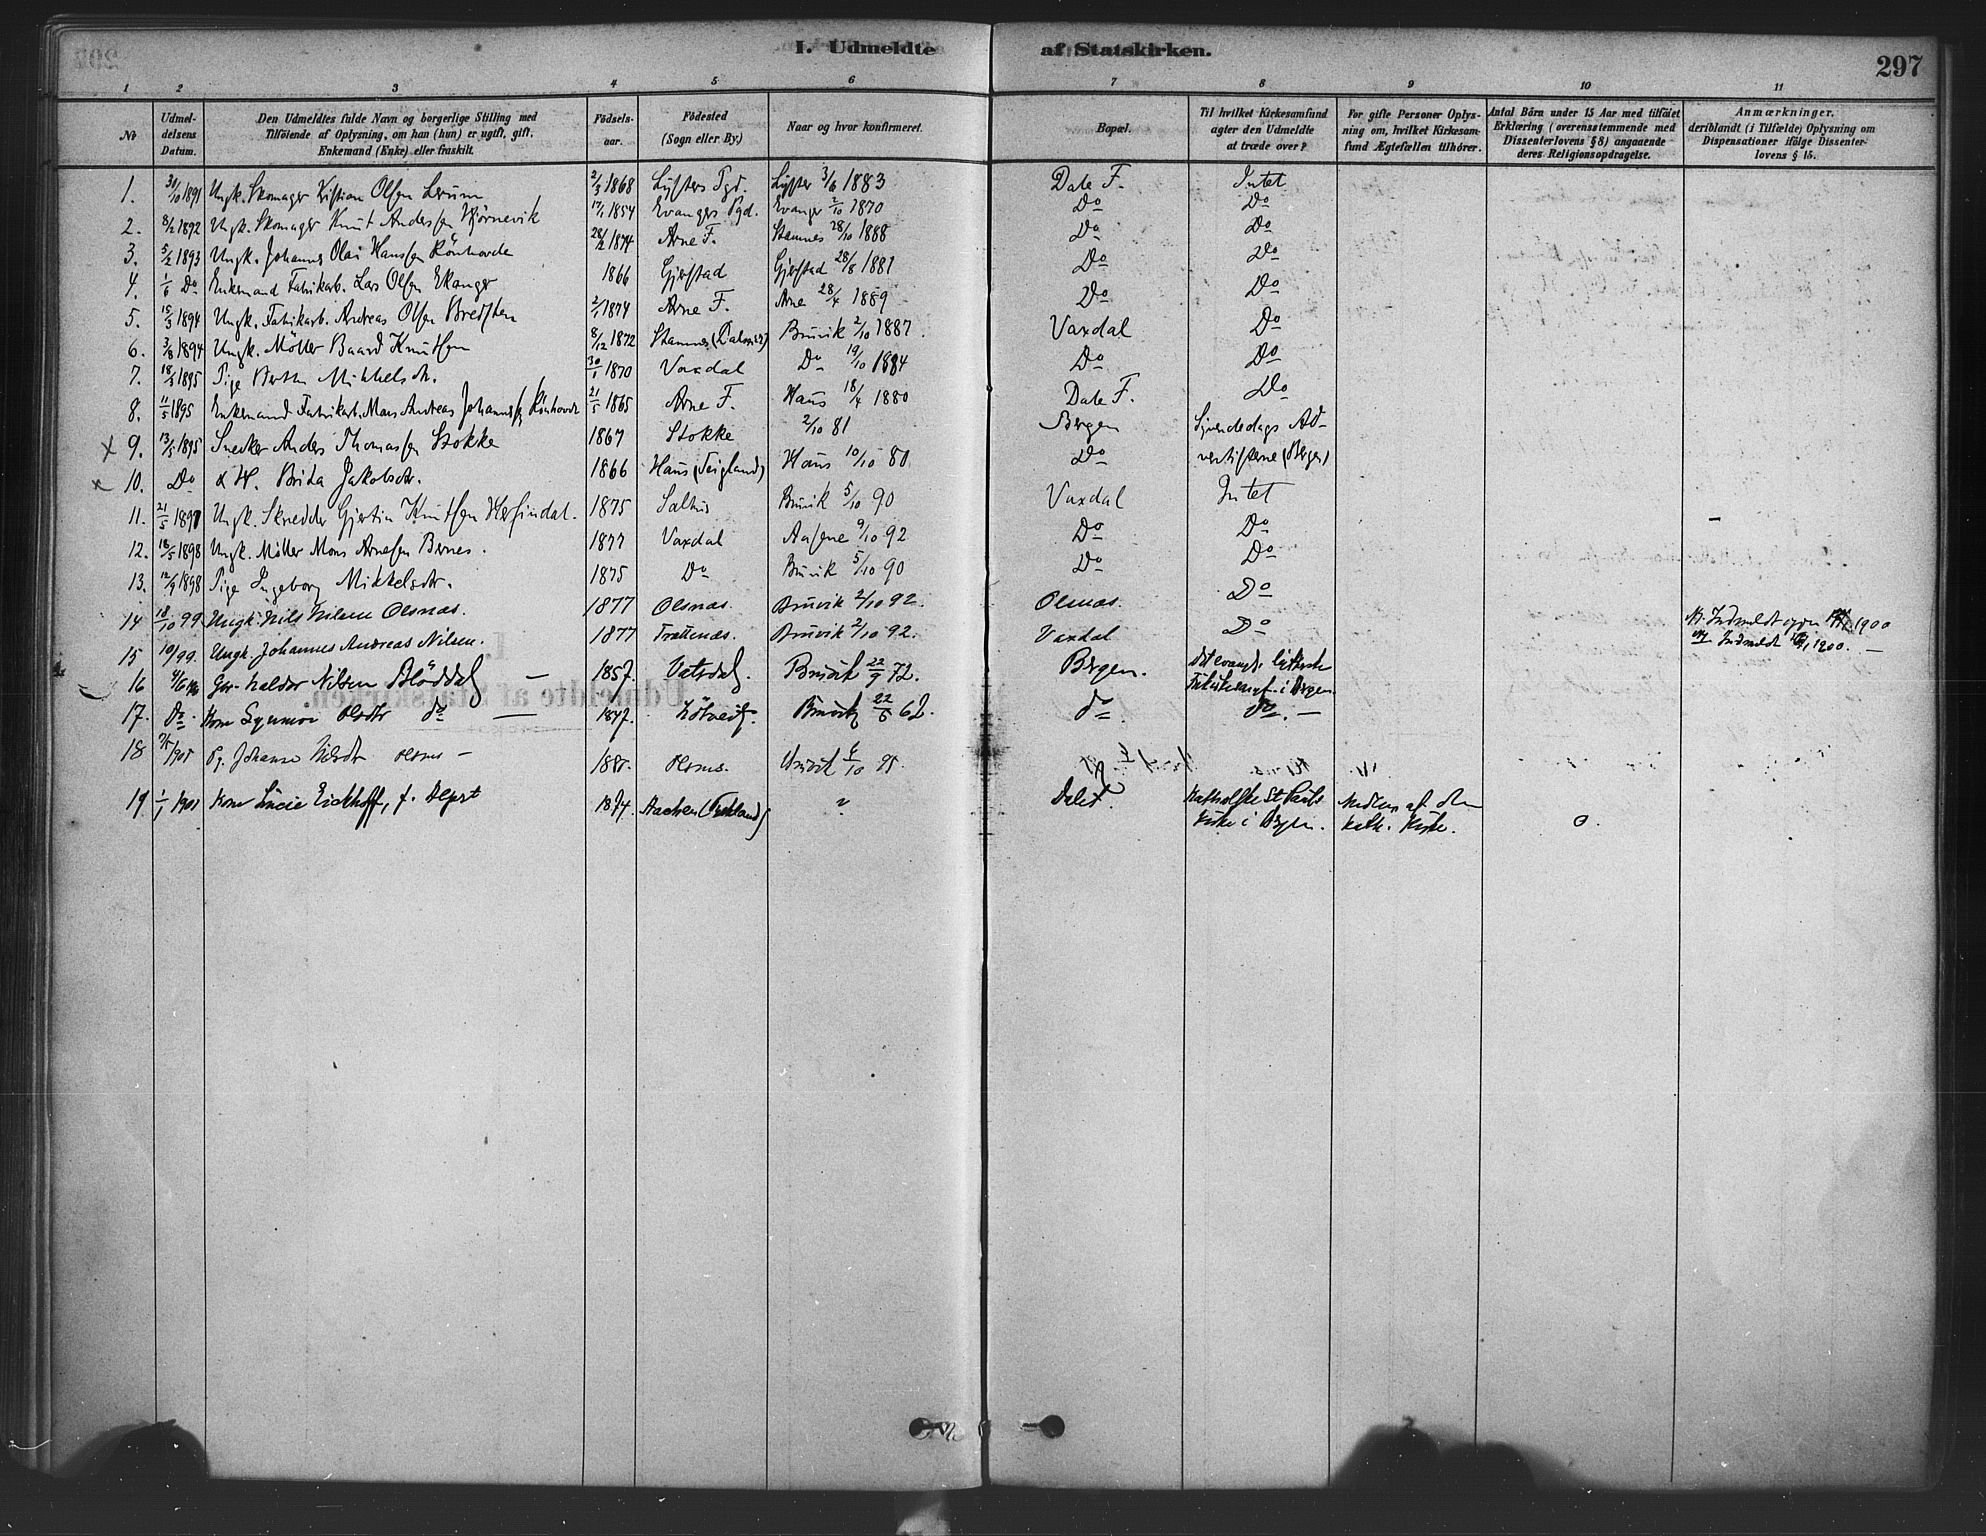 I. Udmeldte af Statskirken. 297
1 2 3 4 5 6 7 8 9 10 11
No
Udmeldelsens Datum.
Den Udmeldtes fulde Navn og borgerlige Stilling med
Tilföiende af Oplysning, om han (hun) er ugift, gift,
Enkemand (Enke) eller fraskilt.
Födselsaar.
Födested
(Sogn eller By.)
Naar og hvor konfirmeret.
Bopæl.
Til hvilket Kirkesamfund
agter den Udmeldte
at træde over?
For gifte Personer Oplysning
om, hvilket Kirkesamfund
Ægtefællen tilhörer.
Antal Börn under 15 Aar med tilföiet
Erklæring (overensstemmende med
Dissenterlovens § 8) angaaende
deres Religionsopdragelse.
Anmærkninger,
deriblandt (i Tilfælde) Oplysning om
Dispensationer ifölge Dissenterlovens § 15.
1. 31/10 1891 Ungk. Skomager Kristian Olsen Lerum 2/3 1868 Lysters Pgd. Lyster 3/6 1883 Dale F. Intet
2. 8/2 1892 Ungk. Skomager Knut Andersen Björnevik 17/1 1854 Evangers Pgd. Evanger 2/10 1870 Do Do
3. 5/2 1893 Ungk. Johannes Olai Hanssen Rönhovde 28/12 1874 Arne F. Stamnes 28/10 1888 Do Do
4. 1/6 Do Enkemand Fabrikarb. Lars Olsen Ekanger 1866 Gjerstad Gjerstad 28/8 1881 Do Do
5. 15/3 1894 Ungk. Fabrikarb. Andreas Olsen Bredsten 2/1 1874 Arne F. Arne 28/4 1889 Do Do
6. 3/8 1894 Ungk. Möller Baard Knutsen 8/12 1872 Stamnes Bruvik 2/10 1887. Vaxdal Do
7. 18/3 1895 Pige Berta Mikkelsdtr. 30/1 1870 Vaxdal Do 19/10 1884 Do Do
8. 11/5 1895 Enkemand Fabrikarb. Mons Andreas Johannessen Rönhovde 21/5 1865 Arne F. Haus 18/4 1880 Dale F. Do
x 9. 13/5 1895 Snedker Anders Thomassen Stokke 1867 Stokke 2/10 81 Bergen Syvendedags Ad-
x 10. Do & H. Brita Jakobsdtr. 1866 Haus (Teigland) Haus 10/10 80 Do ventisterne (Bergen)
11. 21/5 1897 Ungk. Skredder Gjertin Knutsen Herfindal. 1875 Saltvis Bruvik 5/10 90 Vaxdal Intet
12. 18/5 1898 Ungk. Möller Mons Arnesen Bernes. 1877 Vaxdal Aasene 9/10 92 Do Do
13. 12/9 1898 Pige Ingeborg Mikkelsdtr. 1875 Do Bruvik 5/10 90 Do Do
14 18/10 99 Ungk. Nils Nilsen Olsnæs. 1877 Olsnæs. Bruvik 2/10 92. Olsnæs. Do
15 10/99. Ungk. Johannes Andreas Nilsen. 1877 Trættenæs. Bruvik 2/10 92. Vaxdal Do Indmeldt 1900. —
16 Nilsen — 1857. Bruvik 22/9 72. Bergen. i Bergen.
17. Do. Kone Synneva Olsdtr do — 1847. Bruvik 22/6 62. do. do. —
18 1901 Pg. Johanne Nilsdtr Olsnes — Olsnes. Bruvik 6/10 95.
19. 1/1 1901 Kone Lucie Eickhoff, f. 1874. Aachen (Tyskland) " Dale F. Katholske St Pauls Medlem af den 0.
Kirke i Bergen. Kath. Kirke.